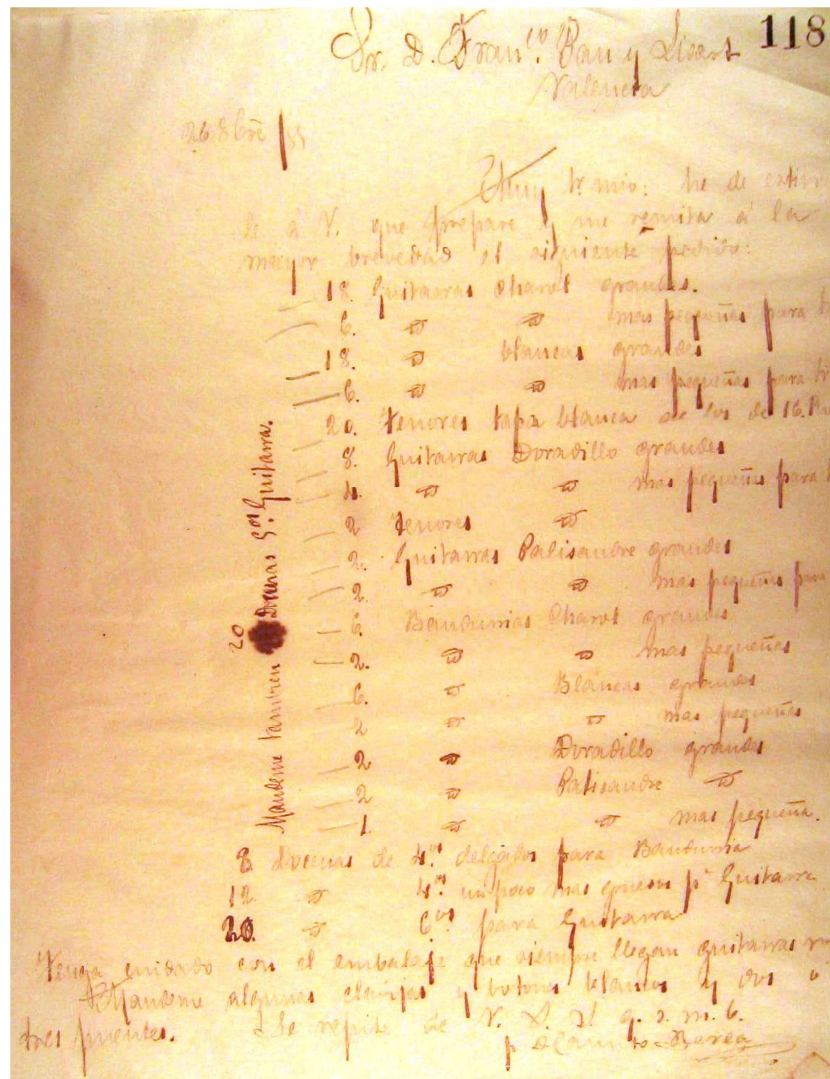 118
Sr. D. Franco. Pau y Lisart
Valencia
Muy Sr. mio: he de estim
le á V. que prepare y me remita á la
mayor brevedad el siguiente pedido:
18. Guitarras Charol grandes.
6. " " mas pequeñas para
18. " blancas grandes
6. " " mas pequeñas para
20. Tenores tapa blanca de los de 16.
8. Guitarras Doradillo grandes
4. " " mas pequeñas para
2 Tenores "
2. Guitarras Palisandre grandes
2. " " mas pequeñas para
6. Bandurrias Charol grandes
2. " " mas pequeñas
6. " Blancas grandes
2 " " mas pequeñas
2 " Doradillo grandes
2 " Palisandre "
1. " " mas pequeña.
8 docenas de 4.as delgados para Bandurria
12 " 4.as un poco mas gruesas pa Guitarra
20. " 6.as para Guitarra
Tenga cuidado con el embalaje que siempre llegan guitarras
Mandeme algunas clavijas y botones blancos y dos o
tres puentes. Se repite de V. S. S. q. s. m. b.
Barea
Mandeme tambien 20 Docenas 5.as Guitarra.